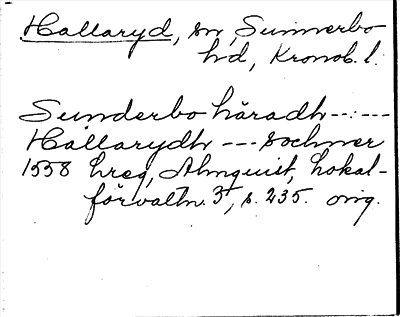 Hallaryd, sn, Sunnerbo
hd, Kronob. l.
Sunderbo häradh --:---
Hallarydh --- sochner
1558 hreg, Almquist, Lokal-
förvaltn. 3, s. 235. orig.